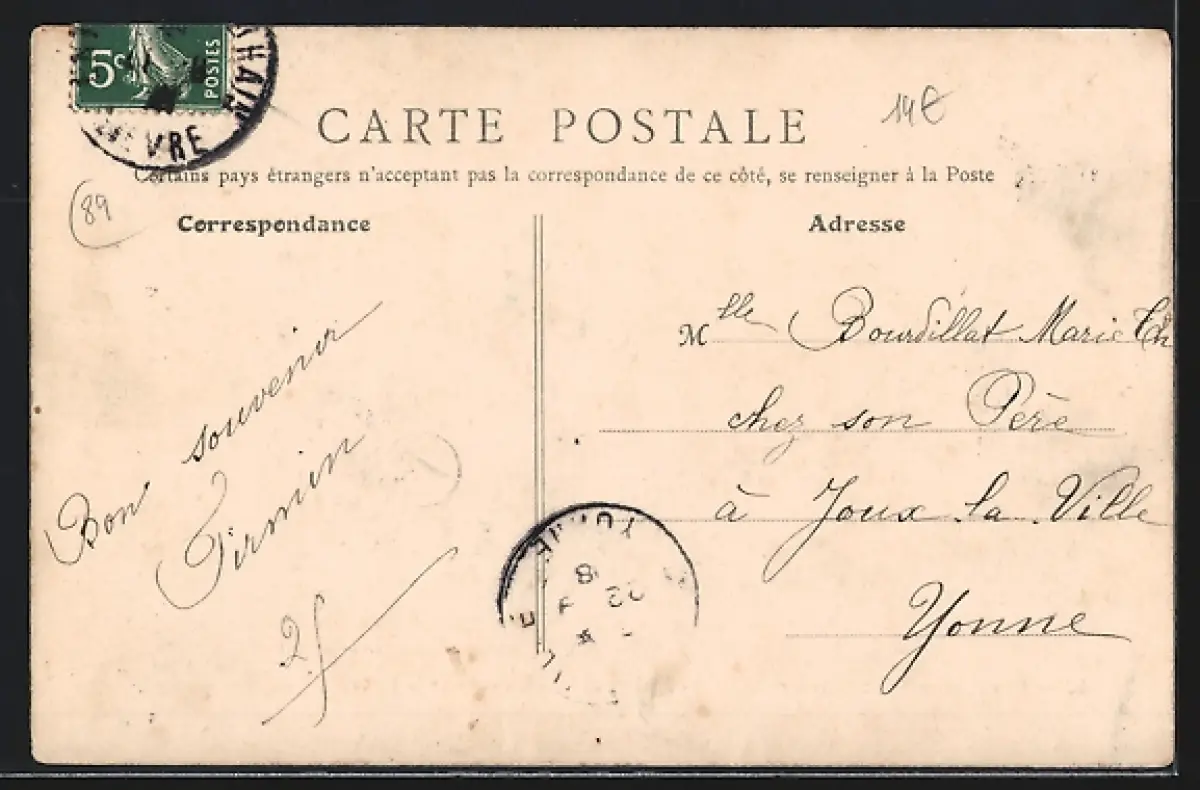 5c
POSTES
HAIN
VRE
14€
CARTE POSTALE
Certains pays étrangers n'acceptant pas la correspondance de ce côté, se renseigner à la Poste
89
Correspondance
Adresse
Bon souvenir
Firmin
Mlle Bourdillat Marie Th
chez son Père
à Joux la Ville
Yonne